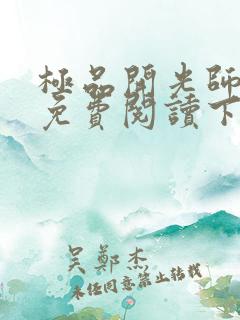 極品開光師
免費閱讀下
吳鄭杰
未經同意禁止轉載